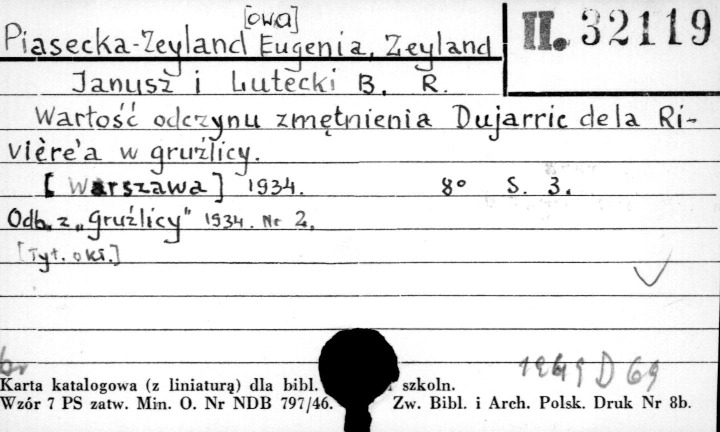 [owa]
Piasecka-Zeyland Eugenia, Zeyland
II. 32119
Janusz i Lutecki B. R.
Wartość odczynu zmętnienia Dujarric de la Ri-
vière'a w gruźlicy.
[Warszawa] 1934. 8° S. 3.
Odb. z „Gruźlicy" 1934. Nr 2.
[Tyt. okł.]
Karta katalogowa (z liniaturą) dla bibl. szkoln.
Wzór 7 PS zatw. Min. O. Nr NDB 797/46. Zw. Bibl. i Arch. Polsk. Druk Nr 8b.